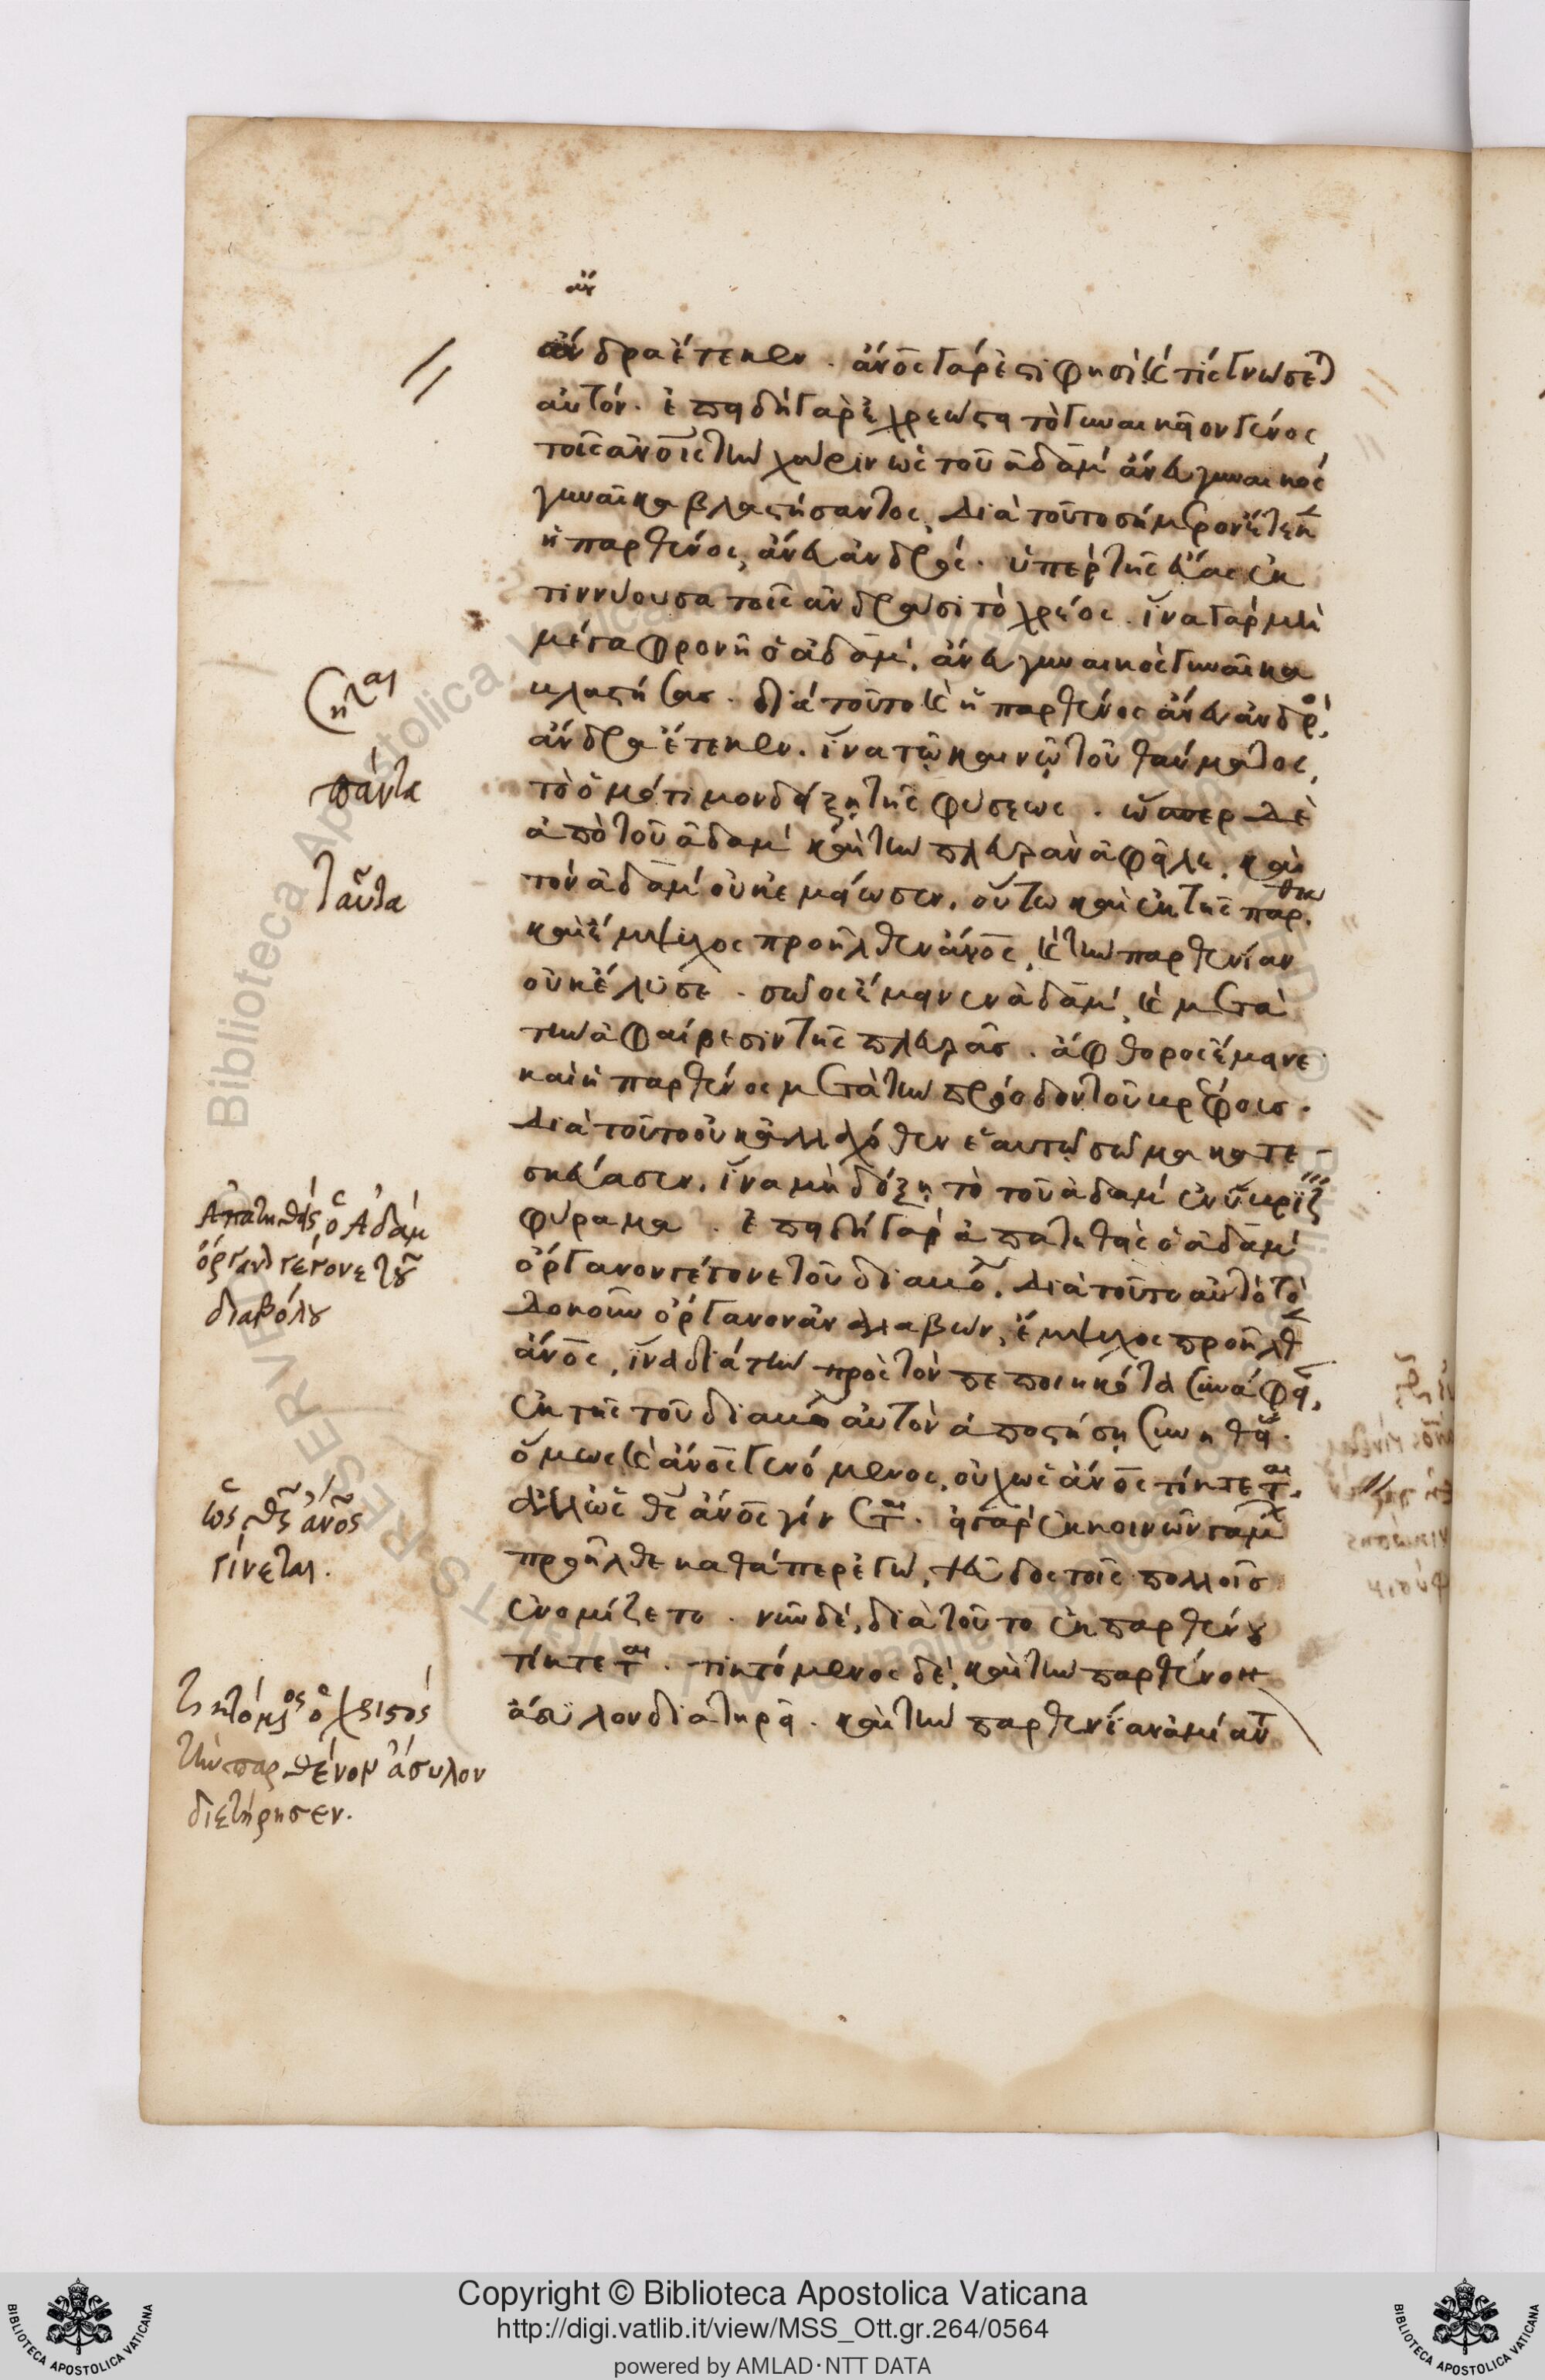 ἄν
ἄνδρα ἔτεκεν. ἄνος γάρ ἐστι φησὶ κ τίς γνώσεται
αὐτόν. ἐπειδὴ γὰρ ἐχρεώστει τὸ γυναικεῖον γένος
τοῖς ἀνοις τὴν χάριν ὡς τοῦ ἀδὰμ ἄνευ γυναικὸς
γυναῖκα βλαστήσαντος, διὰ τοῦτο σήμερον ἔτεκεν
ἡ παρθένος, ἄνευ ἀνδρός. ὑπὲρ τῆς εὔας ἐκ
τιννύουσα τοῖς ἀνδράσι τὸ χρέος. ἵνα γὰρ μὴ
μέγα φρονῇ ὁ ἀδὰμ, ἄνευ γυναικὸς γυναῖκα
βλαστήσας. διὰ τοῦτο κ ἡ παρθένος ἄνευ ἀνδρὸς,
ἄνδρα ἔτεκεν. ἵνα τῷ κοινῷ τοῦ θαύματος,
τὸ ὁμότιμον δείξῃ τῆς φύσεως. ὥσπερ δὲ
ἀπὸ τοῦ ἀδὰμ καὶ τὴν πλευρὰν ἀφεῖλε, καὶ
τὸν ἀδὰμ οὐκ ἐμείωσεν. οὕτω καὶ ἐκ τῆς παρθένου
καὶ ἔμψυχος προῆλθεν ἄνος, κ τὴν παρθενίαν
οὐκ ἔλυσε. σῶος ἔμεινεν ἀδὰμ, κ μετὰ
τὴν ἀφαίρεσιν τῆς πλευρᾶς. ἄφθορος ἔμεινε
καὶ ἡ παρθένος μετὰ τὴν πρόοδον τοῦ βρέφους.
Διὰ τοῦτο οὐκ ἄλλοθεν ἑαυτῷ σῶμα κατε
σκεύασεν. ἵνα μὴ δόξῃ τὸ τοῦ ἀδὰμ ἐνυβρίζειν
φύραμα. ἐπειδὴ γὰρ ἀπατηθεὶς ὁ ἀδὰμ
ὄργανον γέγονε τοῦ διαβόλου. διὰ τοῦτο αὐτὸ τὸ
δοκοῦν ὄργανον ἀναλαβὼν, ἔμψυχος προῆλθεν
ἄνος, ἵνα διὰ τὴν πρὸς τὸν πεποιηκότα συνάφειαν,
ἐκ τῆς τοῦ διαβόλου αὐτὸν ἀποστήσῃ συνηθείας.
ὅμως κ ἄνος γενόμενος, οὐχ ὡς ἄνος τίκτεται,
ἀλλ' ὡς θς ἄνος γίνεται. εἰ γὰρ ἐκ κοινῶν γάμων
προῆλθε καθάπερ ἐγὼ, ψεῦδος τοῖς πολλοῖς
ἐνομίζετο. νῦν δὲ, διὰ τοῦτο ἐκ παρθένου
τίκτεται. τικτόμενος δὲ, καὶ τὴν παρθένον
ἄσυλον διατηρεῖ. καὶ τὴν παρθενίαν ἀμίαντον
πάντα
ταῦτα
Ἀπατηθεὶς ὁ Ἀδάμ
ὄργανον γέγονε τοῦ
διαβόλου
ὡς θς ἄνος
γίνεται.
τικτόμενος ὁ χριστός
τὴν παρθένον ἄσυλον
διετήρησεν.
Copyright © Biblioteca Apostolica Vaticana
http://digi.vatlib.it/view/MSS_Ott.gr.264/0564
powered by AMLAD·NTT DATA
BIBLIOTECA APOSTOLICA VATICANA
BIBLIOTECA APOSTOLICA VATICANA